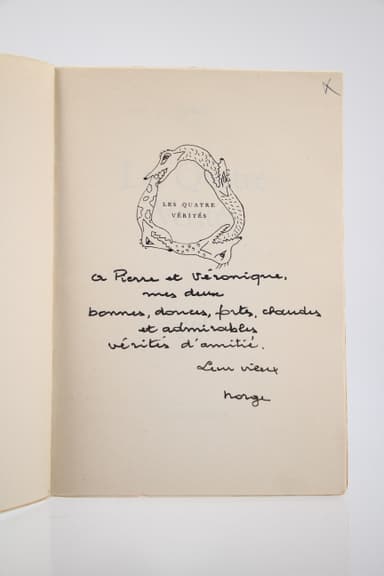 LES QUATRE
VÉRITÉS
a Pierre et Véronique,
mes deux
bonnes, douces, fortes, chaudes
et admirables
vérités d'amitié.
Leur vieux
norge